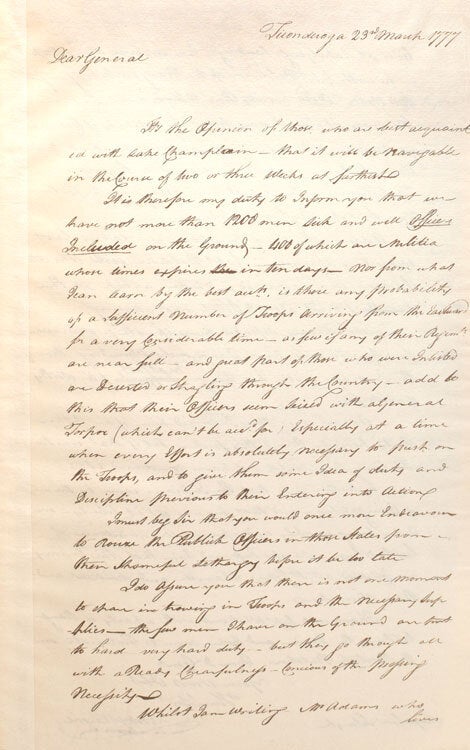 Ticonderoga 23rd March 1777
Dear General
It's the Openion of those who are best acquaint
ed with Lake Champlain – that it will be Navigable
in the Course of two or three weeks at farthest
It is therefore my duty to Inform you that we
have not more than 1200 men Sick and well Officers
Included on the Ground – 400 of which are Militia
whose times expires in ten days – Nor from what
I can learn by the best acts, is there any Probability
of a Sufficient Number of Troops arriving from the Eastward
for a very Considerable time – as few if any of their Regimts
are near full – and great part of those who were Inlisted
are Deserted or Stragling through the Country – add to
this that their Officers seem Seized with a General
Torpor (which can't be acd for) Especially at a time
when every Effort is absolutely necessary to push on
the Troops, and to give them some Idea of duty and
Discipline Previous to their Entering into Action
I must beg Sir that you would once more Endeavour
to Rouze the Publick Officers in those States from
their Shameful Lethargy before it be too late
I do assure you that there is not one Moment
to spare in bringing in Troops and the Necessary Sup
plies – the few men I have on the Ground are put
to hard very hard duty – but they go through all
with a Ready Chearfulness – Concious of the Pressing
Necessity
Whilst I am Writing Mr Adams who
lives